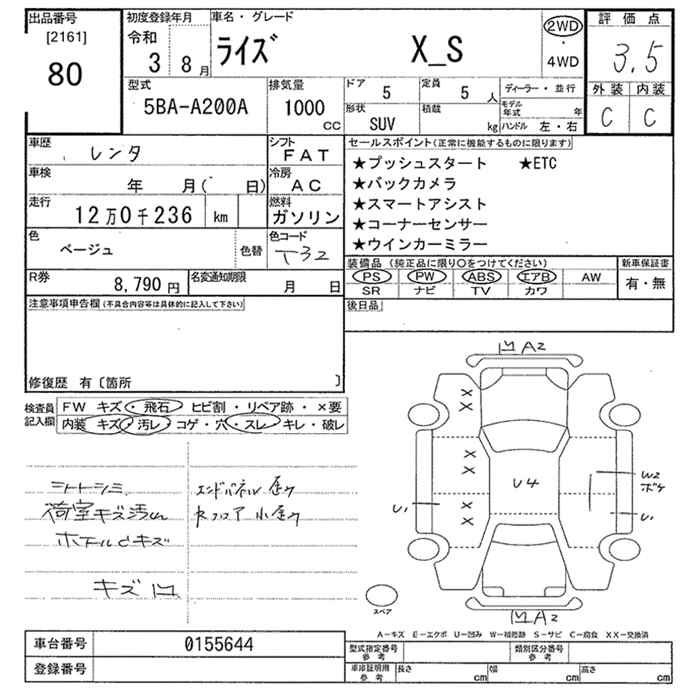 出品番号 初度登録年月 車名・グレード 評価点
[2161] 令和 ライズ X_S 2WD
80 3 8月 ・ 3.5
4WD
型式 排気量 ドア 定員 ディーラー・並行 外装 内装
5BA-A200A 1000 cc 5 5人 モデル年式 年 C C
形状 積載
SUV kg ハンドル 左・右
車歴 レンタ シフト FAT セールスポイント(正常に機能するものに限ります)
車検 年 月( 日) 冷房 AC ★プッシュスタート ★ETC
走行 12万0千236 km 燃料 ガソリン ★バックカメラ
★スマートアシスト
色 ベージュ 色替 色コード T32 ★コーナーセンサー
★ウインカーミラー
R券 8,790円 名変通知期限 月 日 装備品(純正品に限り○をつけてください) 新車保証書
PS PW ABS エアB AW 有・無
SR ナビ TV カワ
注意事項申告欄(不具合内容等は具体的に記入して下さい) 後日品
修復歴 有〔箇所 〕
検査員記入欄 FW キズ・飛石・ヒビ割・リペア跡・×要
内装 キズ・汚レ・コゲ・穴・スレ・キレ・破レ
シートシミ エンドパネル歪み
荷室キズ汚れ フロア小歪み
ホイールCキズ
キズ凹
凹A2
X X
X X
X X
U4
U1
W2
ボケ
U1
スペア
凹A2
A-キズ E-エクボ U-凹み W-補修跡 S-サビ C-腐食 XX-交換済
車台番号 0155644 型式指定番号参考 類別区分番号参考
登録番号 車庫証明用参考 長さ cm 幅 cm 高さ cm